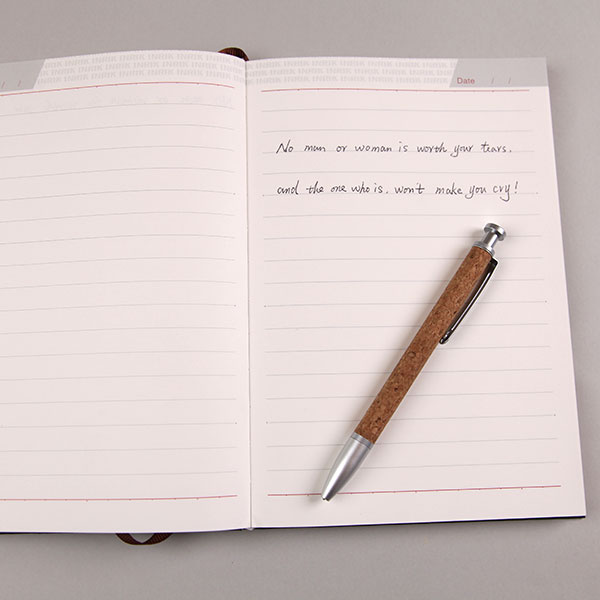 Date / /
No man or woman is worth your tears,
and the one who is, won't make you cry!